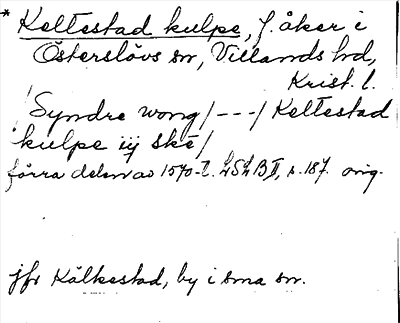 * Keltestad kulpe, f. åker i
Österslövs sn, Villands hd,
Krist. l.
/Syndre wong/---/Keltestad
kulpe iij ske/
förra delen av 1570-t. LSLB II, s. 187. orig.
jfr Kälkestad, by i sma sn.